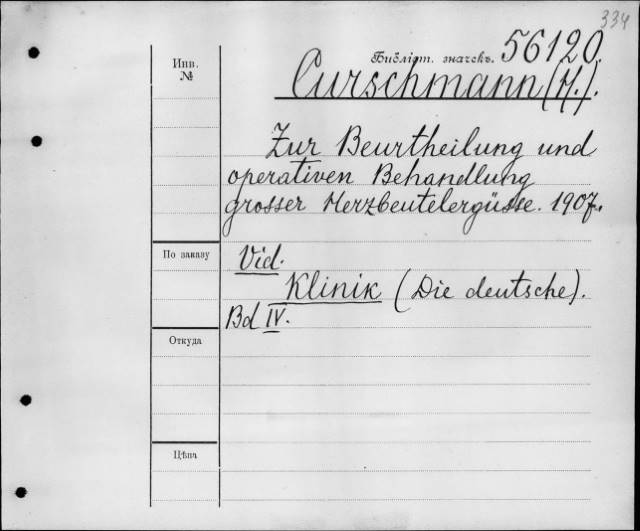 334
Инв.
№
Библіот. значекъ. 56120.
Curschmann (H.).
Zur Beurtheilung und
operativen Behandlung
grosser Herzbeutelergüsse. 1907.
По заказу
Vid.
Klinik (Die deutsche).
Bd IV.
Откуда
Цѣна